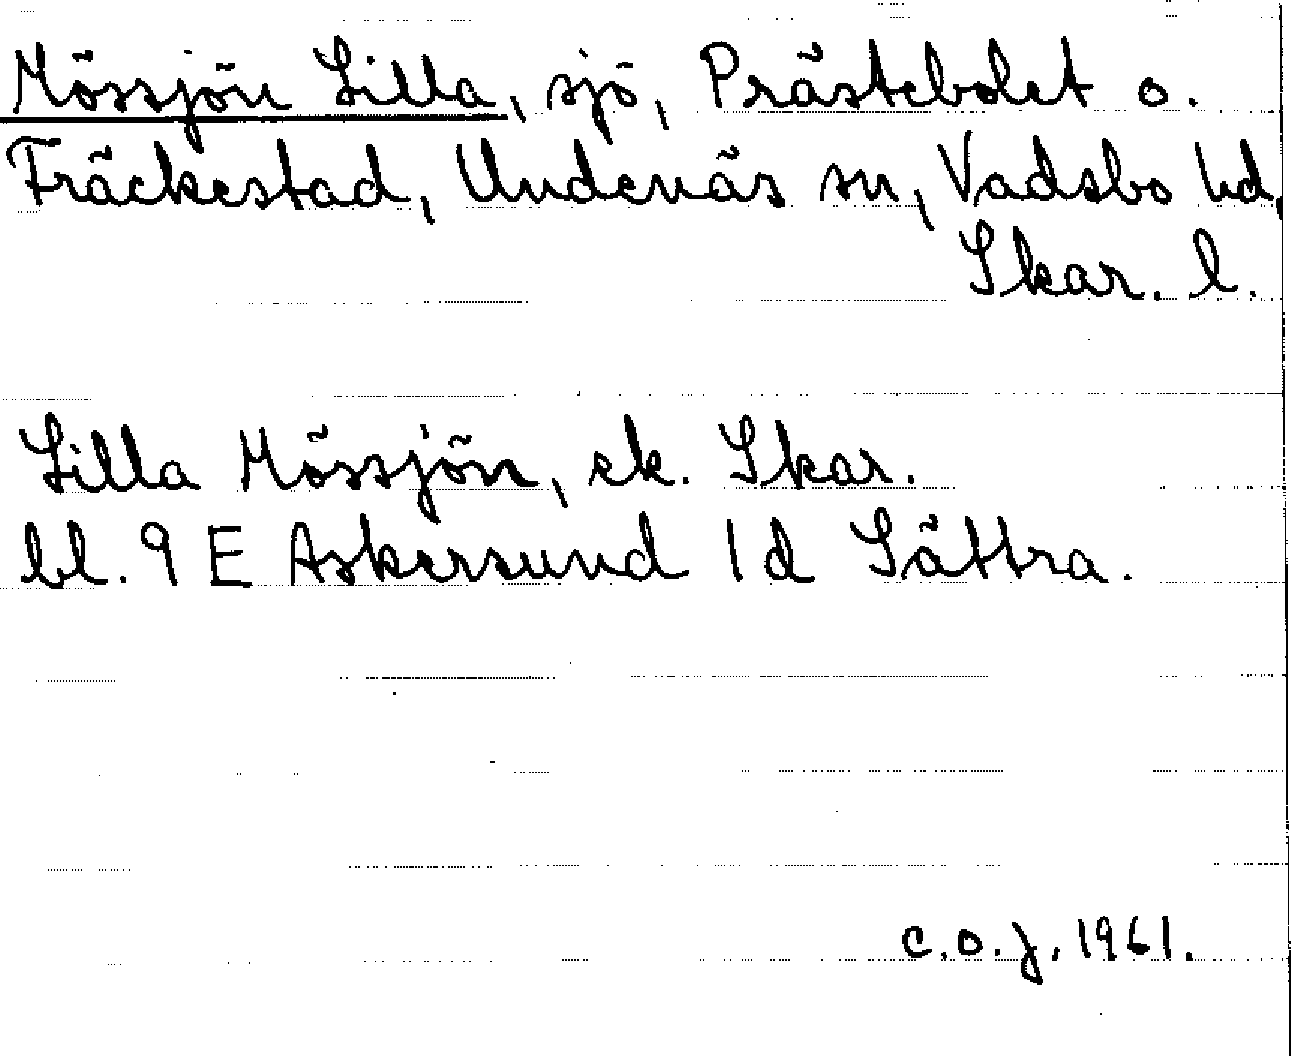 Mössjön Lilla, sjö, Prästebolet o.
Fräckestad, Undenäs sn, Vadsbo hd,
Skar. l.
Lilla Mössjön, ek. Skar.
bl. 9 E Askersund 1d Sättra.
C.O.J. 1961.